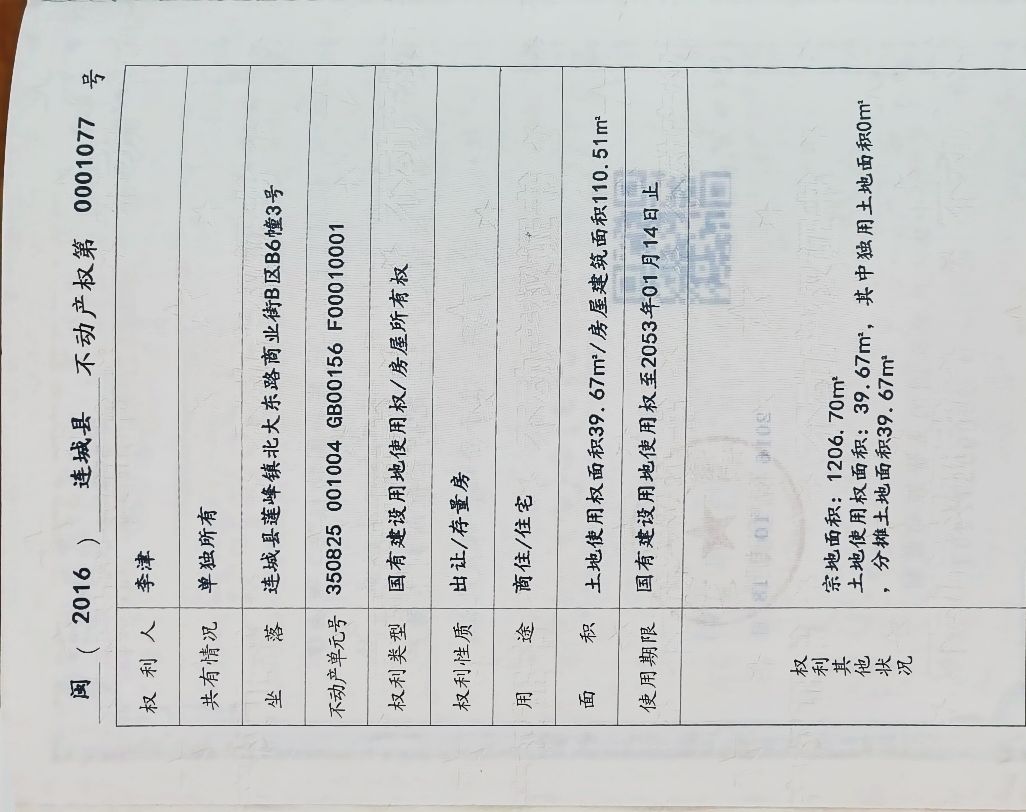 闽（ 2016 ） 连城县 不动产权第 0001077 号
权利人 李津
共有情况 单独所有
坐落 连城县莲峰镇北大东路商业街B区B6幢3号
不动产单元号 350825 001004 GB00156 F00010001
权利类型 国有建设用地使用权/房屋所有权
权利性质 出让/存量房
用途 商住/住宅
面积 土地使用权面积39.67㎡/房屋建筑面积110.51㎡
使用期限 国有建设用地使用权至2053年01月14日止
权利其他状况
宗地面积：1206.70㎡
土地使用权面积：39.67㎡，其中独用土地面积0㎡
，分摊土地面积39.67㎡